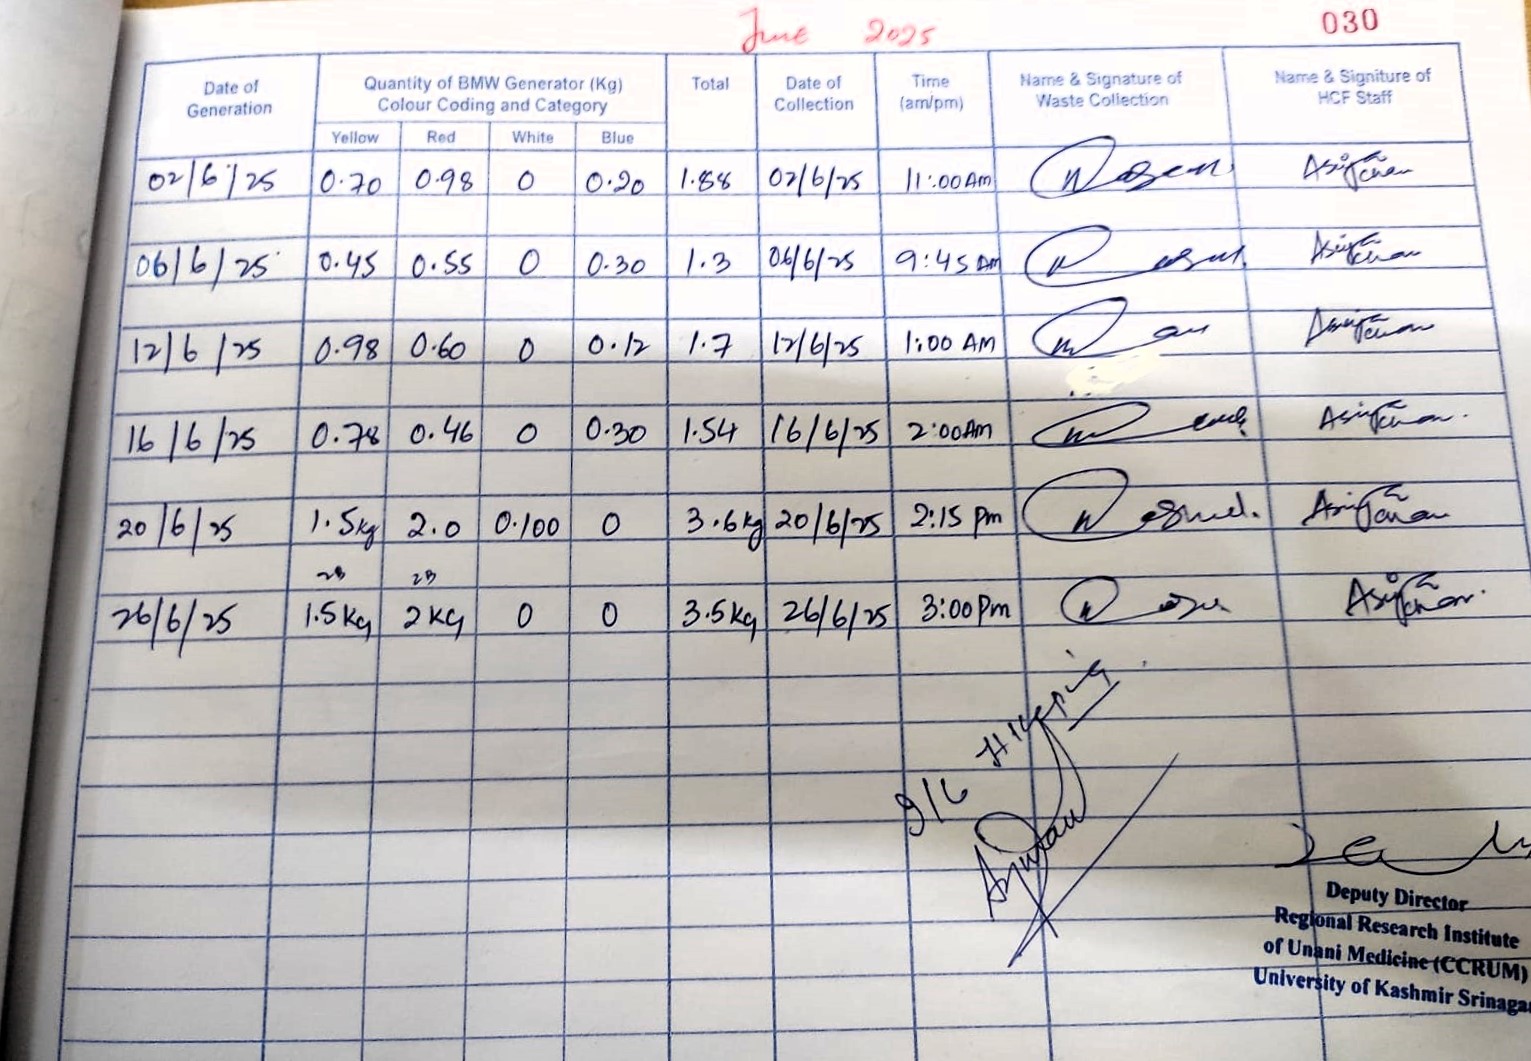 June 2025
030
Date of Generation Quantity of BMW Generator (Kg) Colour Coding and Category Total Date of Collection Time (am/pm) Name & Signature of Waste Collection Name & Signiture of HCF Staff
Yellow Red White Blue
02/6/25 0.70 0.98 0 0.20 1.88 02/6/25 11:00 Am
06/6/25 0.45 0.55 0 0.30 1.3 06/6/25 9:45 Am
12/6/25 0.98 0.60 0 0.12 1.7 12/6/25 1:00 AM
16/6/25 0.78 0.46 0 0.30 1.54 16/6/25 2:00 Am
20/6/25 1.5kg 2.0 0.100 0 3.6kg 20/6/25 2:15 Pm
26/6/25 1.5Kg 2Kg 0 0 3.5Kg 26/6/25 3:00 Pm
Deputy Director
Regional Research Institute
of Unani Medicine (CCRUM)
University of Kashmir Srinagar